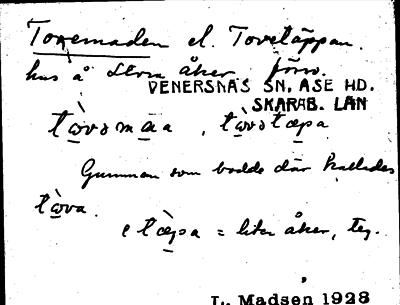 Tovemaden el. Tovetäppan.
hus å stora åker förr.
VENERSNÄS SN, ÅSE HD.
SKARAB. LÄN
tòvəmäa, tòvətæpa
Gumman som bodde där kallades
tòva.
e tæ̀pa = liten åker, teg.
L. Madsen 1928